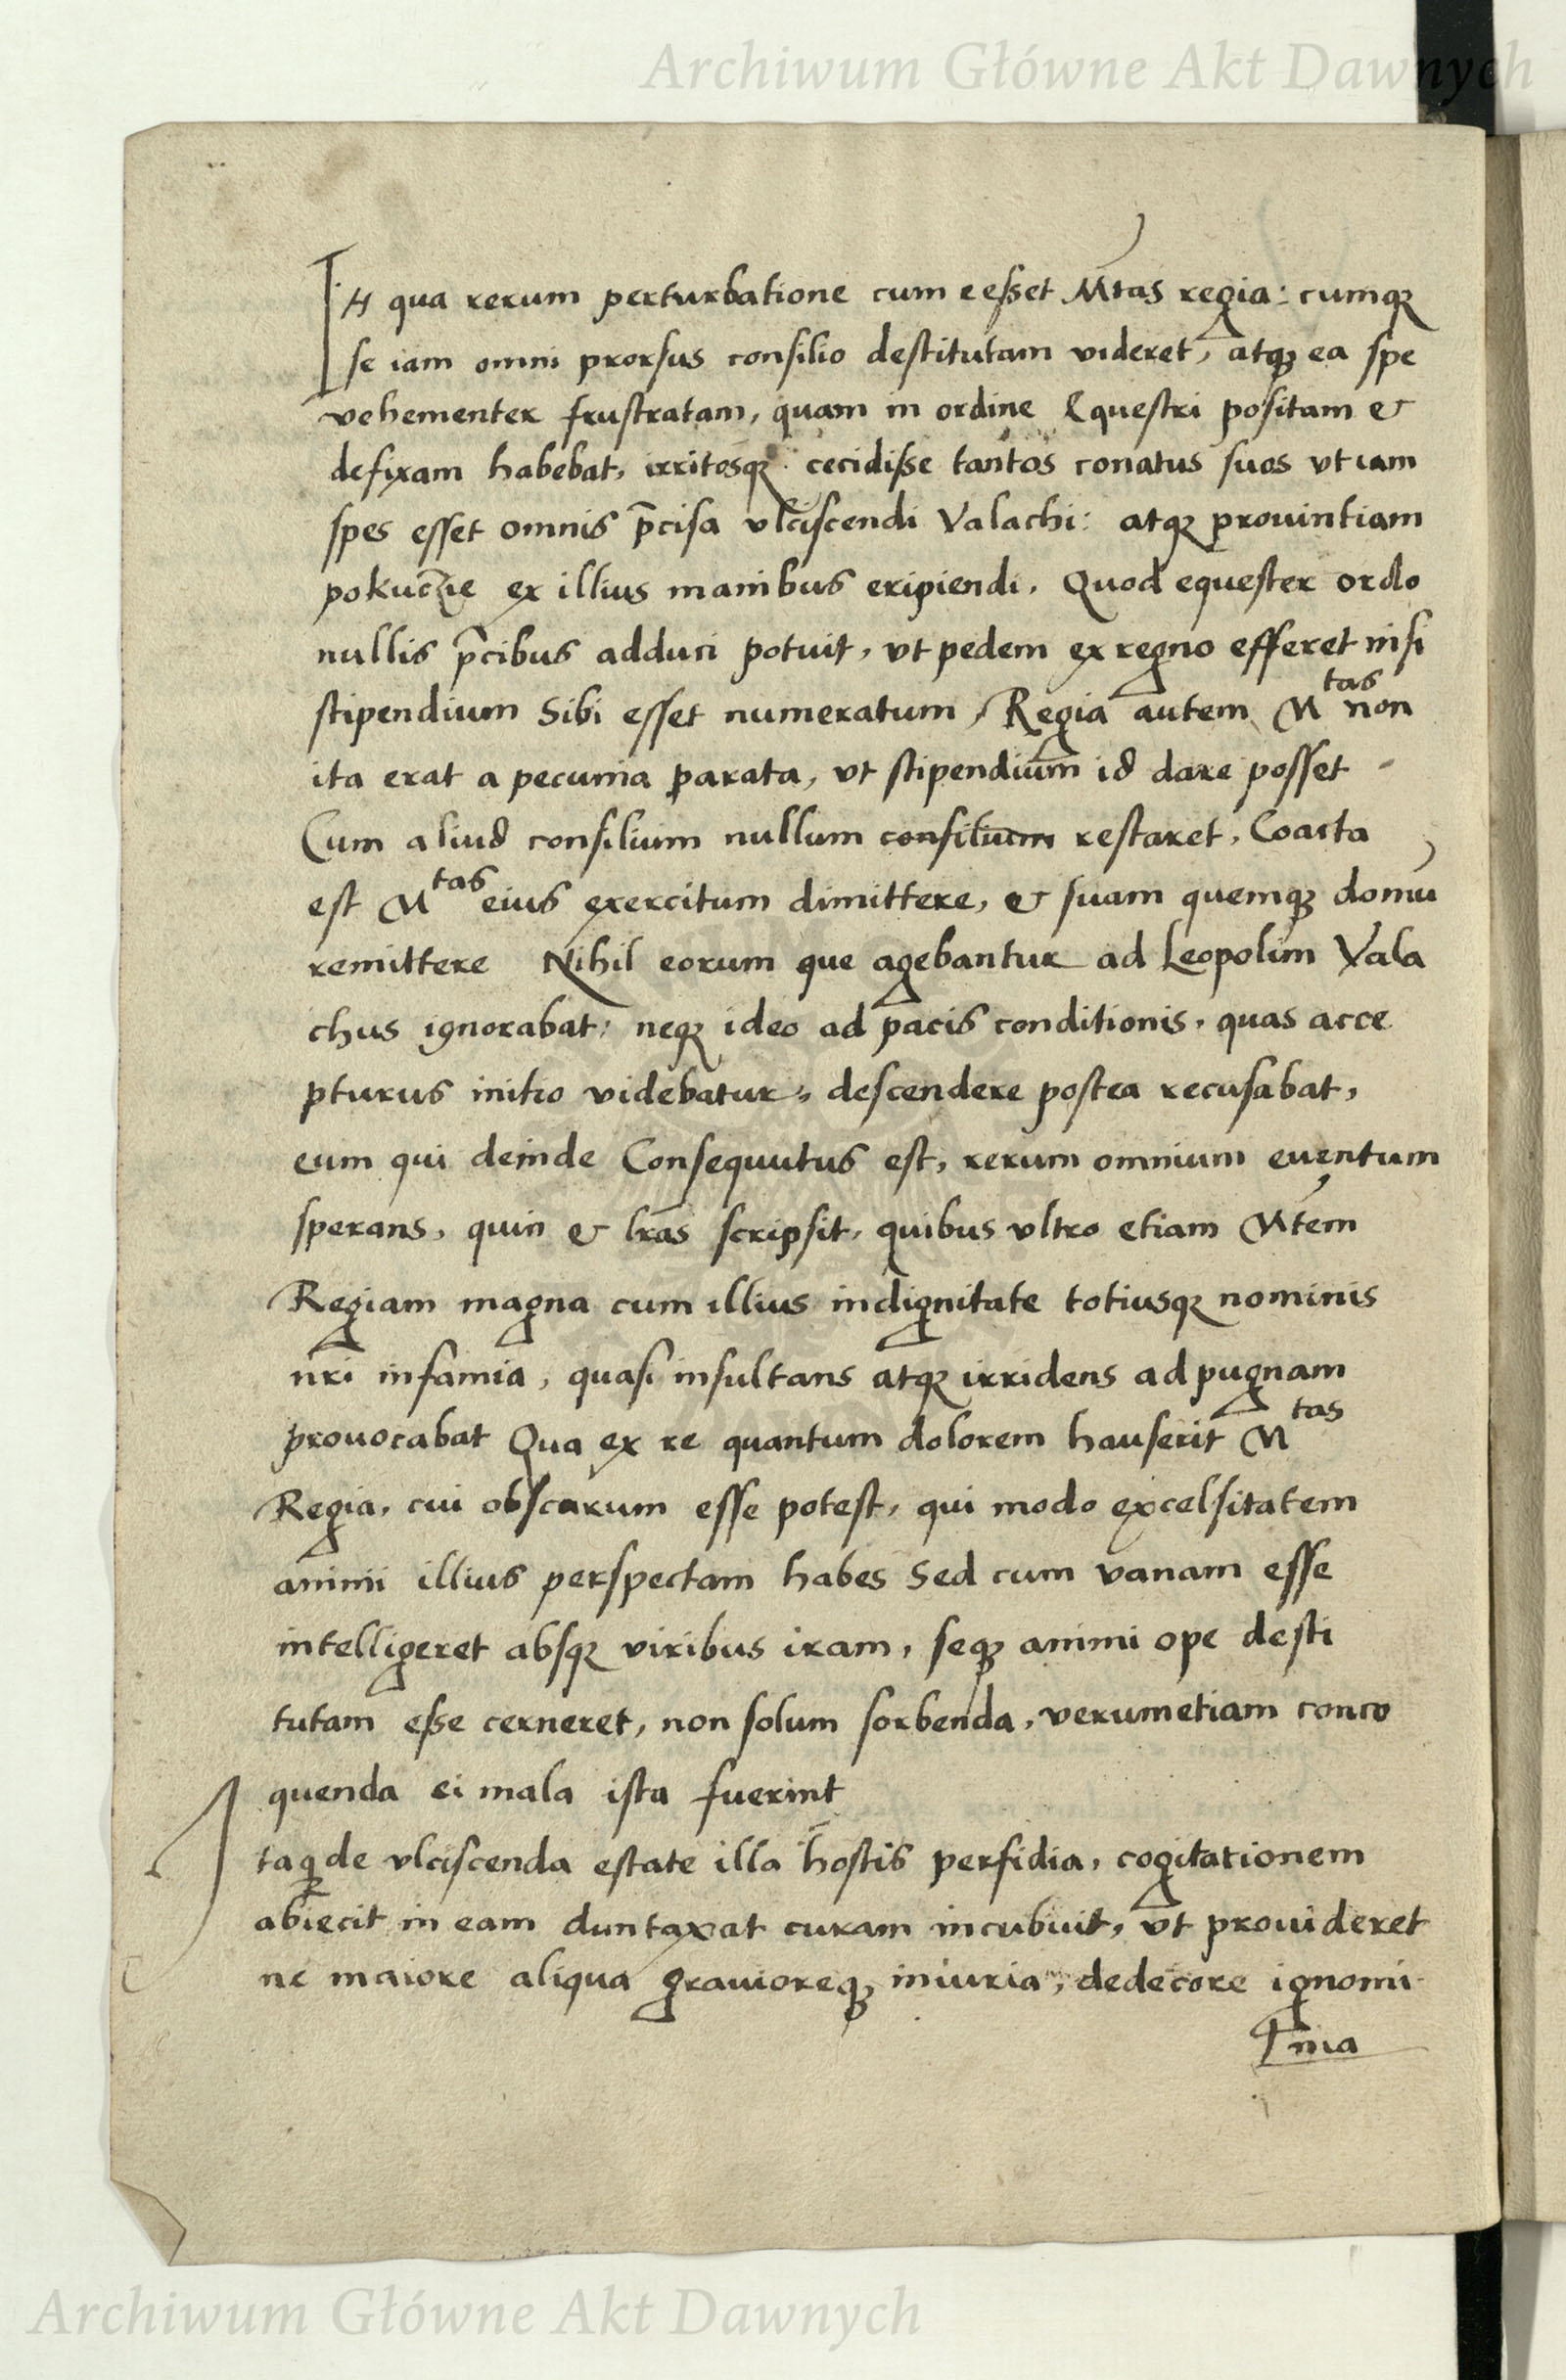 Archiwum Główne Akt Dawnych
In qua rerum perturbatione cum eesset Mtas regia: cumqꝫ
se iam omni prorsus consilio destitutam videret, atqꝫ ea spe
vehementer frustratam, quam in ordine Equestri positam &
defixam habebat, irritosqꝫ cecidisse tantos conatus suos vt iam
spes esset omnis p̄cisa vlciscendi Valachi: atqꝫ prouintiam
pokuczie ex illius manibus eripiendi. Quod equester ordo
nullis p̄cibus adduci potuit, vt pedem ex regno efferet nisi
stipendium Sibi esset numeratum, Regia autem Mtas non
ita erat a pecunia parata, vt stipendium id dare posset
Cum aliud consilium nullum consilium restaret, Coacta
est Mtas eius exercitum dimittere, & suam quemqꝫ domū
remittere Nihil eorum que agebantur ad Leopolim Vala
chus ignorabat: neqꝫ ideo ad pacis conditionis, quas acce
pturus initio videbatur, descendere postea recusabat,
eum qui deinde Consequutus est, rerum omnium euentum
sperans, quin & lr̄as scripsit, quibus vltro etiam Mtem
Regiam magna cum illius indignitate totiusqꝫ nominis
nr̄i infamia, quasi insultans atqꝫ irridens ad pugnam
prouocabat Qua ex re quantum dolorem hauserit Mtas
Regia, cui obscurum esse potest, qui modo excelsitatem
animi illius perspectam habes Sed cum vanam esse
intelligeret absqꝫ viribus iram, seqꝫ animi ope desti
tutam esse cerneret, non solum sorbenda, verumetiam conco
quenda ei mala ista fuerint
Itaqꝫ de vlciscenda estate illa hostis perfidia, cogitationem
abiecit in eam duntaxat curam incubuit, vt prouideret
ne maiore aliqua grauioreqꝫ iniuria, dedecore ignomi
nia
Archiwum Główne Akt Dawnych